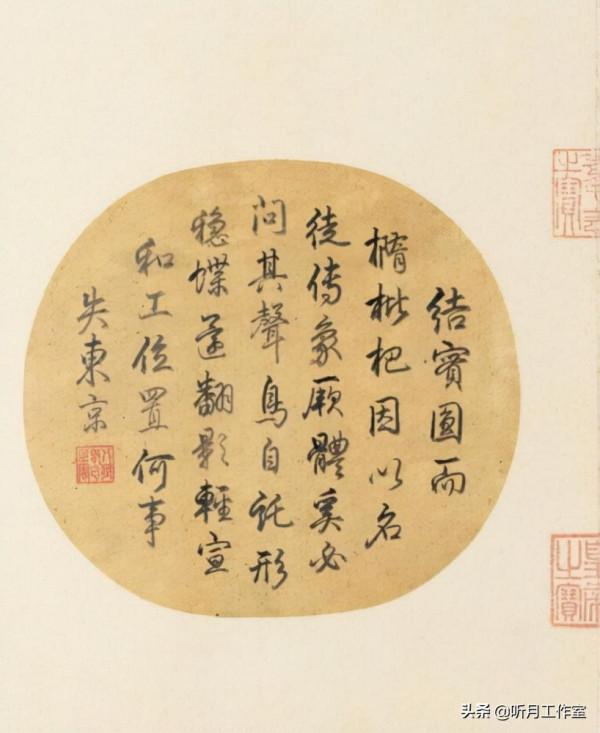 結實圓而
橢枇杷因以名
徒傳象厥體奚必
問其聲鳥自託形
穩蝶還翻影輕宣
和工位置何事
失東京
皇帝
之寶
头条 @听月工作室